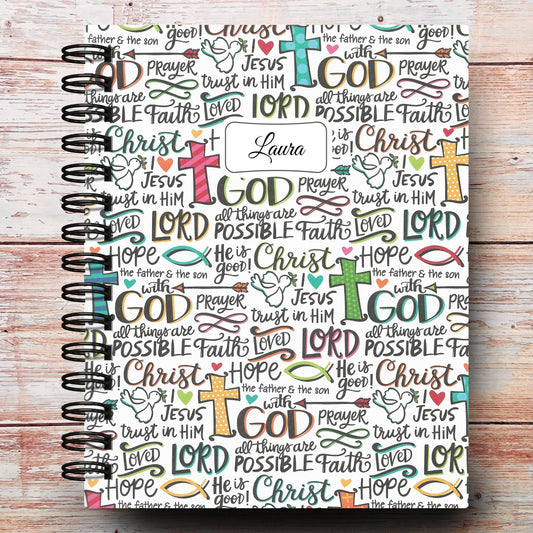 is good!
the father & the son
with
GOD PRAYER JESUS GOD PRAYER
trust in Him
all things are
POSSIBLE Faith LOVED LORD POSSIBLE Faith
Christ Laura He is good! Christ
JESUS GOD PRAYER JESUS
trust in Him trust in Him
LORD all things are LOVED LORD
POSSIBLE Faith
HOPE He is good! Christ HOPE
the father & the son the father & the son
with JESUS with
GOD PRAYER trust in Him GOD PRAYER
all things are all things are
POSSIBLE Faith LOVED LORD POSSIBLE Faith
He is good! Christ HOPE He is good!
the father & the son
JESUS with
trust in Him GOD PRAYER JESUS
trust in Him
LOVED LORD all things are
POSSIBLE Faith LOVED LORD
HOPE He is good! Christ HOPE